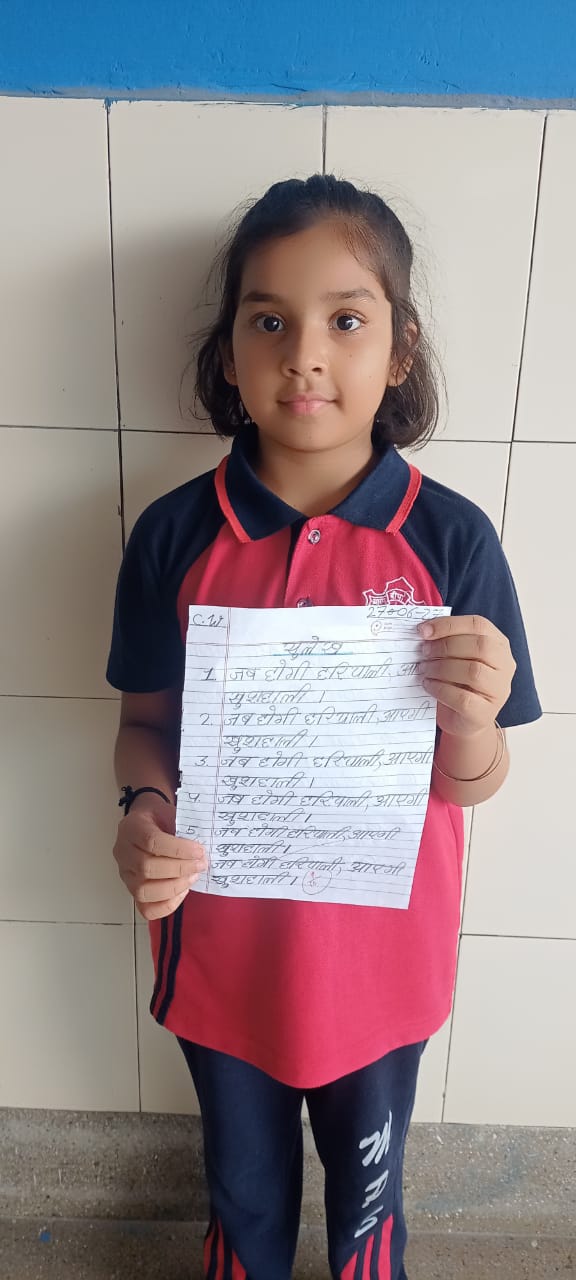 C.W
27-06-27
सुलेख
1. जब होगी हरियाली, आए
खुशहाली ।
2. जब होगी हरियाली, आएगी
खुशहाली ।
3. जब होगी हरियाली, आएगी
खुशहाली ।
4. जब होगी हरियाली, आएगी
खुशहाली ।
5. जब होगी हरियाली, आएगी
खुशहाली ।
जब होगी हरियाली, आएगी
खुशहाली ।